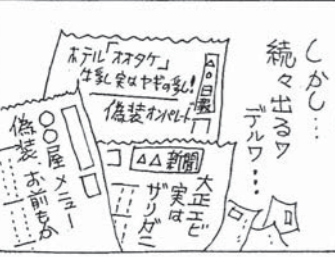 しかし…
続々出るワ
デルワ…
△○日報
ホテル「オオタケ」
牛乳実はヤギの乳!
偽装オンパレード
△△新聞
大正エビ
実は
ザリガニ
○○屋メニュー
偽装お前もか